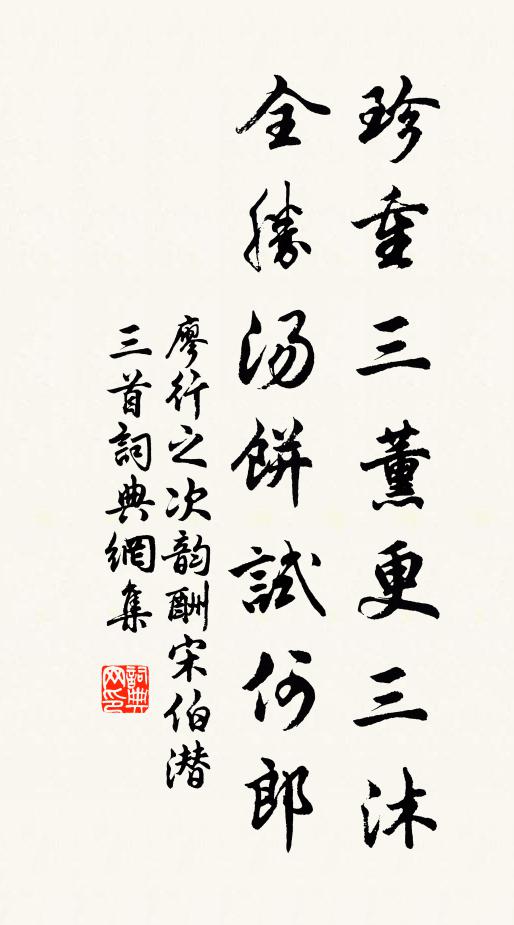 珍重三薰更三沐
全勝汤餅試何郎
廖行之次韵酬宋伯潜
三首詞典網集
詞典网印